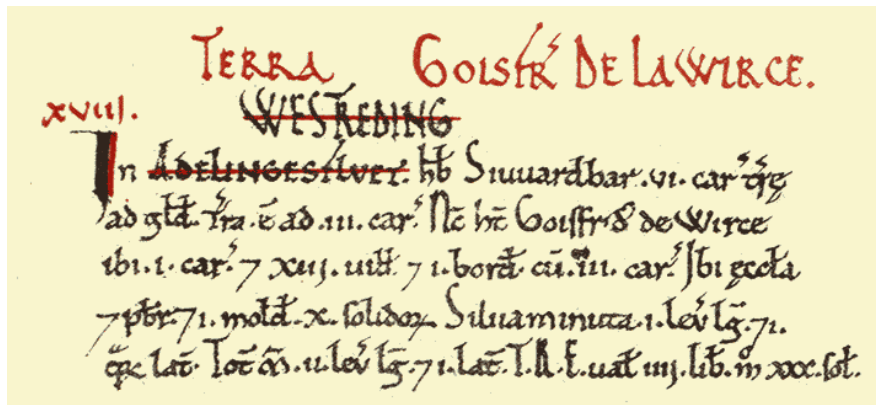 TERRA GOISFR̃ DE LAWIRCE.
xviii. WESTREDING
In ADELINGESFLUET. hb̃ Siuuardbar .vi. car̃ tr̃ę
ad gld̃. Tr̃a .ẽ ad .iii. car̃. Nc̃ ht̃ Goisfrið de Wirce
ibi .i. car̃. ⁊ xiii. uill̃ ⁊ i. bord̃ cũ .iii. car̃. Ibi ęccl̃a
⁊ pb̃r. ⁊ i. mold̃ .x. solidoꝝ. Silua minuta .i. leũ lg̃. ⁊ i.
lat̃. Tot̃ m̃ .ii. leũ lg̃. ⁊ i. lat̃. T.R.E. ual̃ iiii. lib̃. m̊ xxx. sol̃.